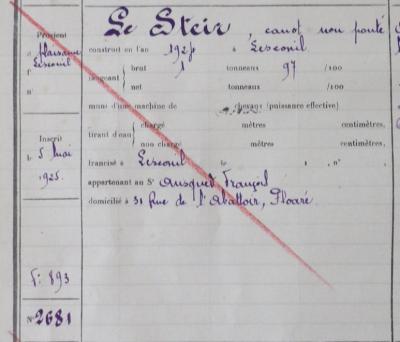 Le Steir, canot non ponté
Provient
d plaisance
Lesconil
f°
n°
construit en l'an 1925 à Lesconil
jaugeant { brut 1 tonneaux 97 /100
net tonneaux /100
muni d'une machine de chevaux (puissance effective)
Inscrit
le 5 Mai
1925.
tirant d'eau { chargé mètres centimètres,
non chargé mètres centimètres,
francisé à Lesconil le , n°
appartenant au Sr Ausquer François
domicilié à 31 Rue de l'Abattoir, Ploaré.
F: 893
N° 2681